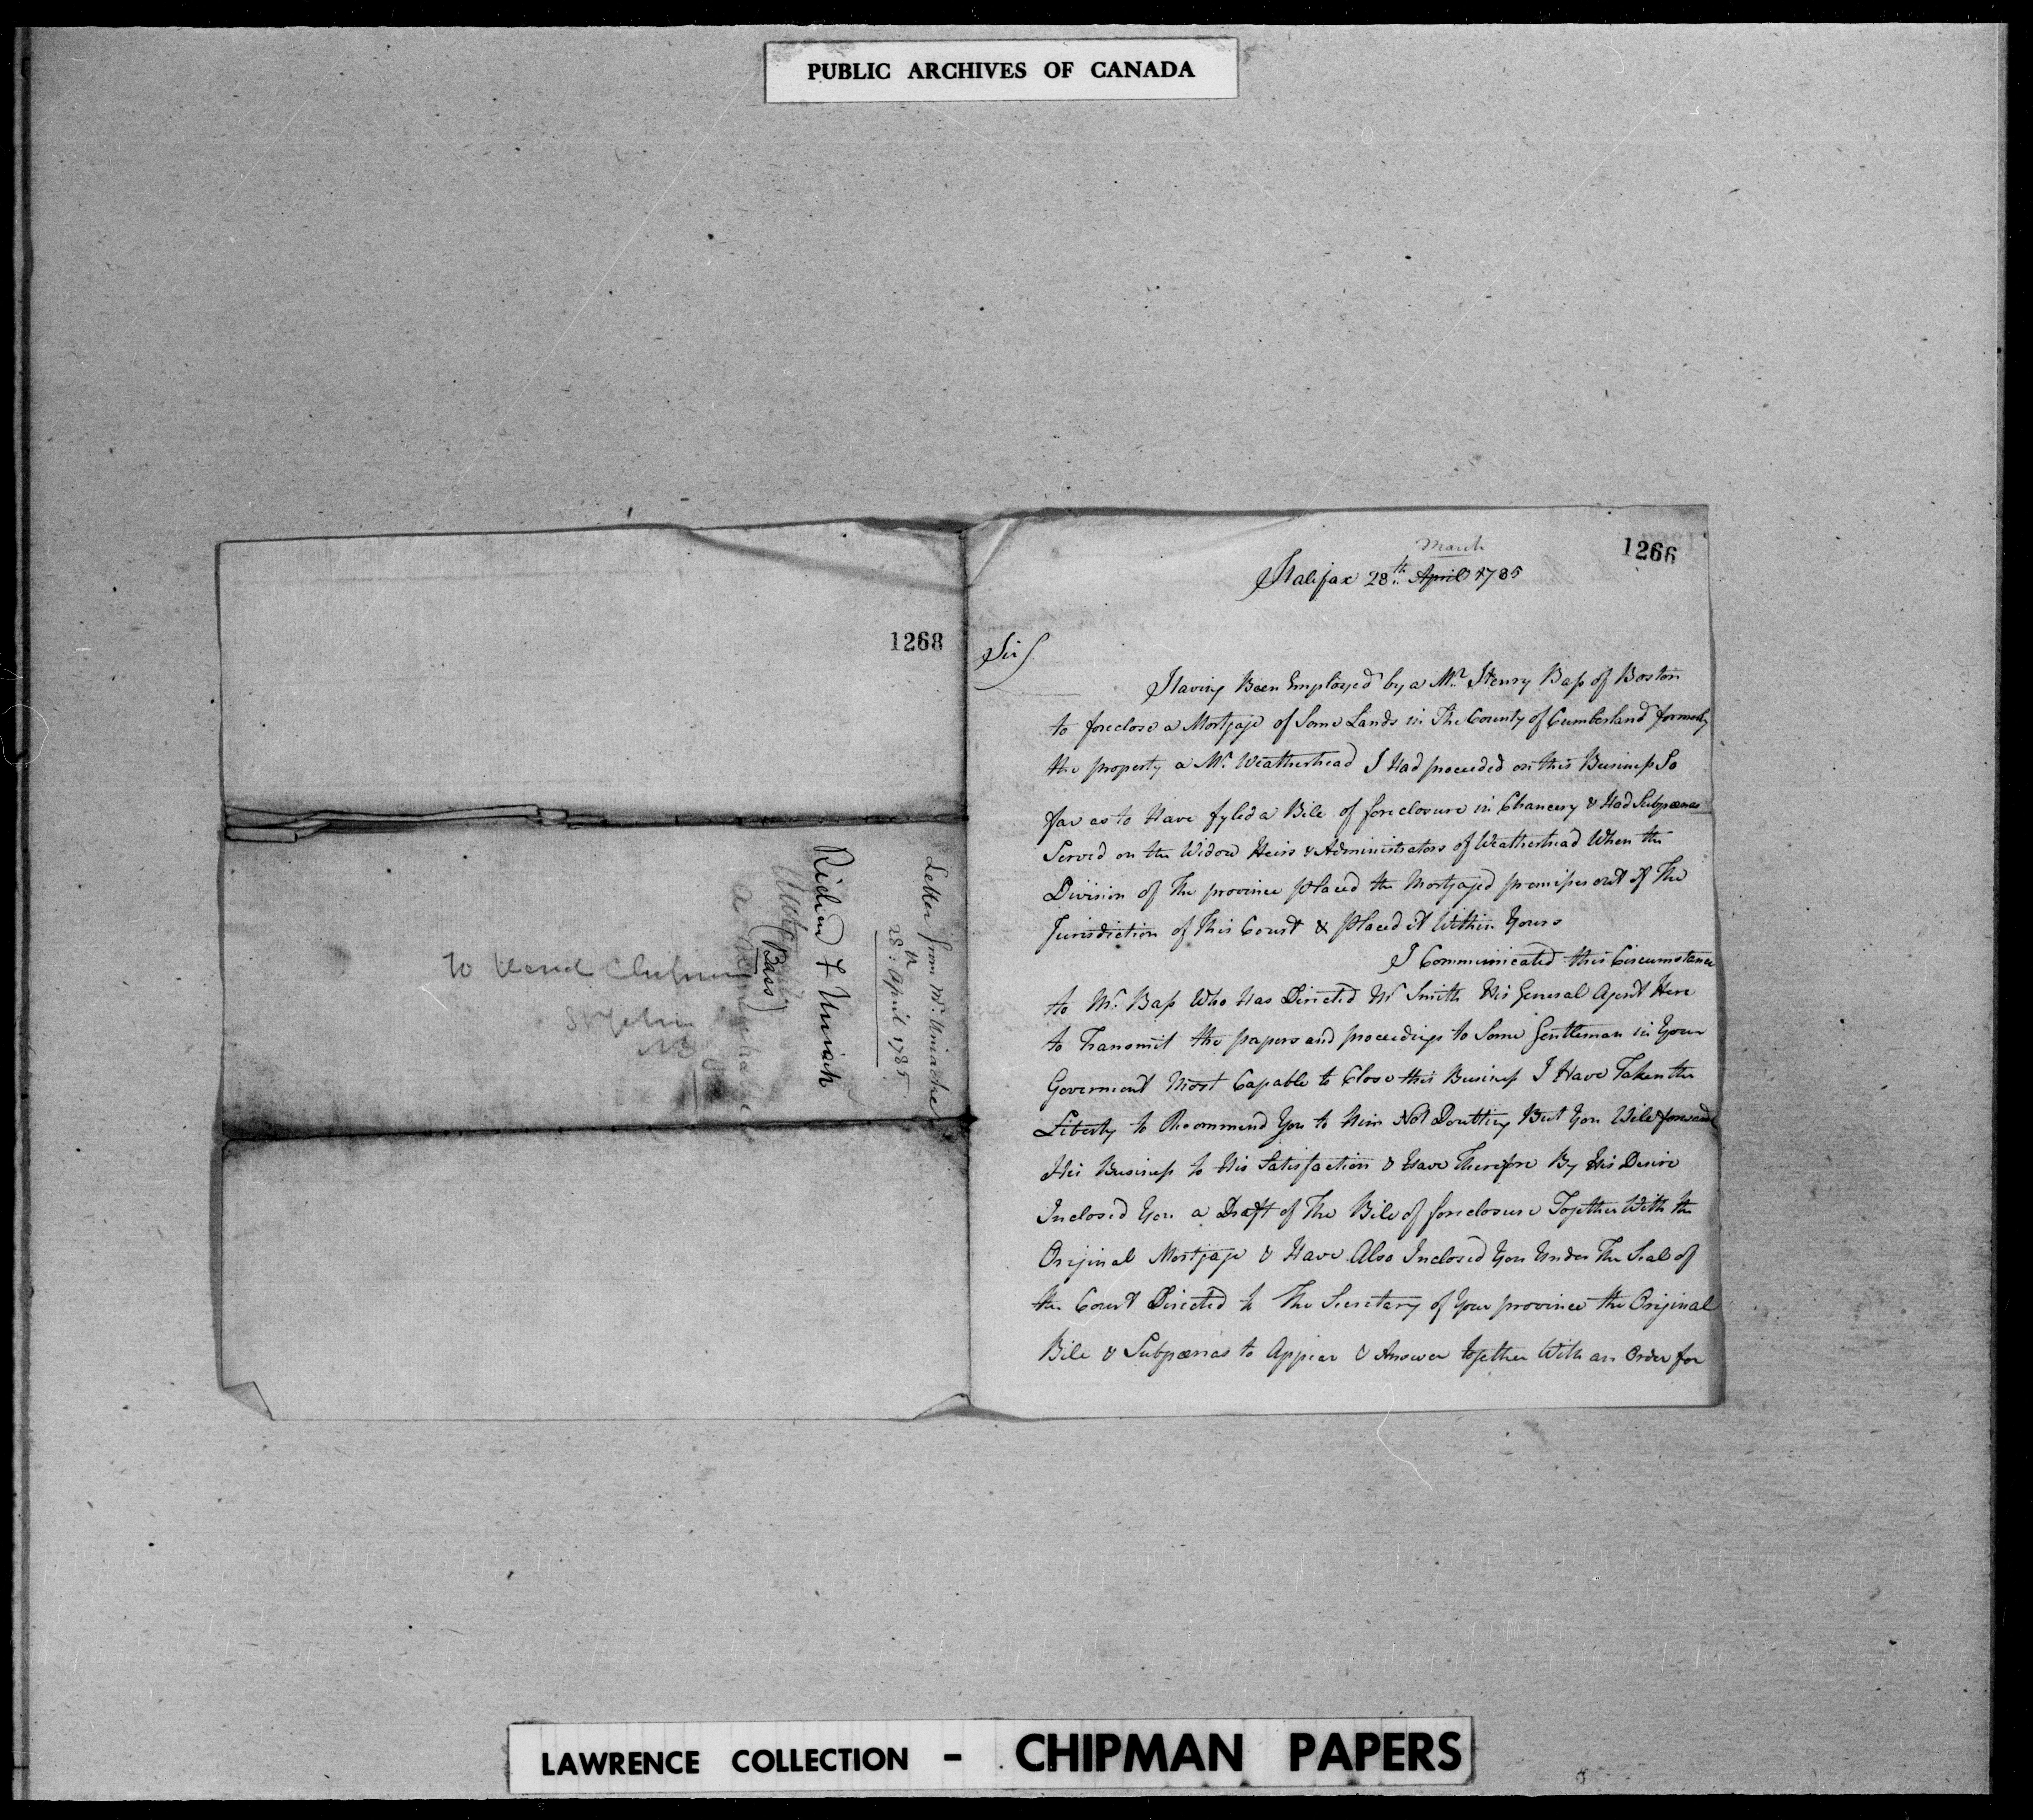 PUBLIC ARCHIVES OF CANADA
1266
March
Halifax 28th April 1785
Sir
Having Been Employed by a Mr Henry Bass of Boston
to foreclose a Mortgage of Some Lands in The County of Cumberland formerly
the property a Mr Weatherhead I Had proceeded on this Business So
far as to Have fyled a Bile of foreclosure in Chancery & Had Subpœnas
Served on the Widow Heirs & Administrators of Weatherhead When the
Division of The province placed the Mortgaged premises out of The
Jurisdiction of This Court & placed it Within Yours
I Communicated this Circumstance
to Mr Bass Who Has Directed Mr Smith His General Agent Here
to Transmit the papers and proceedings to Some Gentleman in Your
Goverment Most Capable to Close this Business I Have Taken the
Liberty to Recommend You to Him Not Doubting But You Will forward
His Business to His Satisfaction & Have Therefore By His Desire
Inclosed You a Draft of The Bile of foreclosure Together With the
Original Mortgage & Have Also Inclosed You Under The Seal of
the Court Directed to The Secretary of Your province the Original
Bile & Subpœnas to Appear & Answer together With an Order for
1268
Letter from Mr. Uniacke
28th April 1785
Richard J Uniack
(Bass)
a
To Ward Chipman
St John
NB
LAWRENCE COLLECTION - CHIPMAN PAPERS